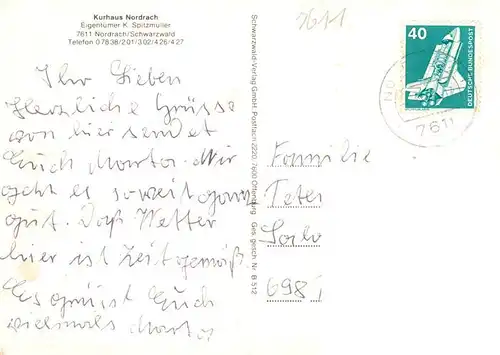 Kurhaus Nordrach
Eigentümer K. Spitzmüller
7611 Nordrach/Schwarzwald
Telefon 07838/201/302/426/427
Ihr Lieben
Herzliche Grüsse
von hier sendet
Euch Marta. Mir
geht es soweit ganz
gut. Daß Wetter
hier ist zeitgemäß.
Es grüsst Euch
vielmals Marta
Schwarzwald-Verlag GmbH, Postfach 2220, 7600 Offenburg Ges. gesch. Nr. B 512
7611
40
DEUTSCHE BUNDESPOST
NO
7611
Familie
Peter
698